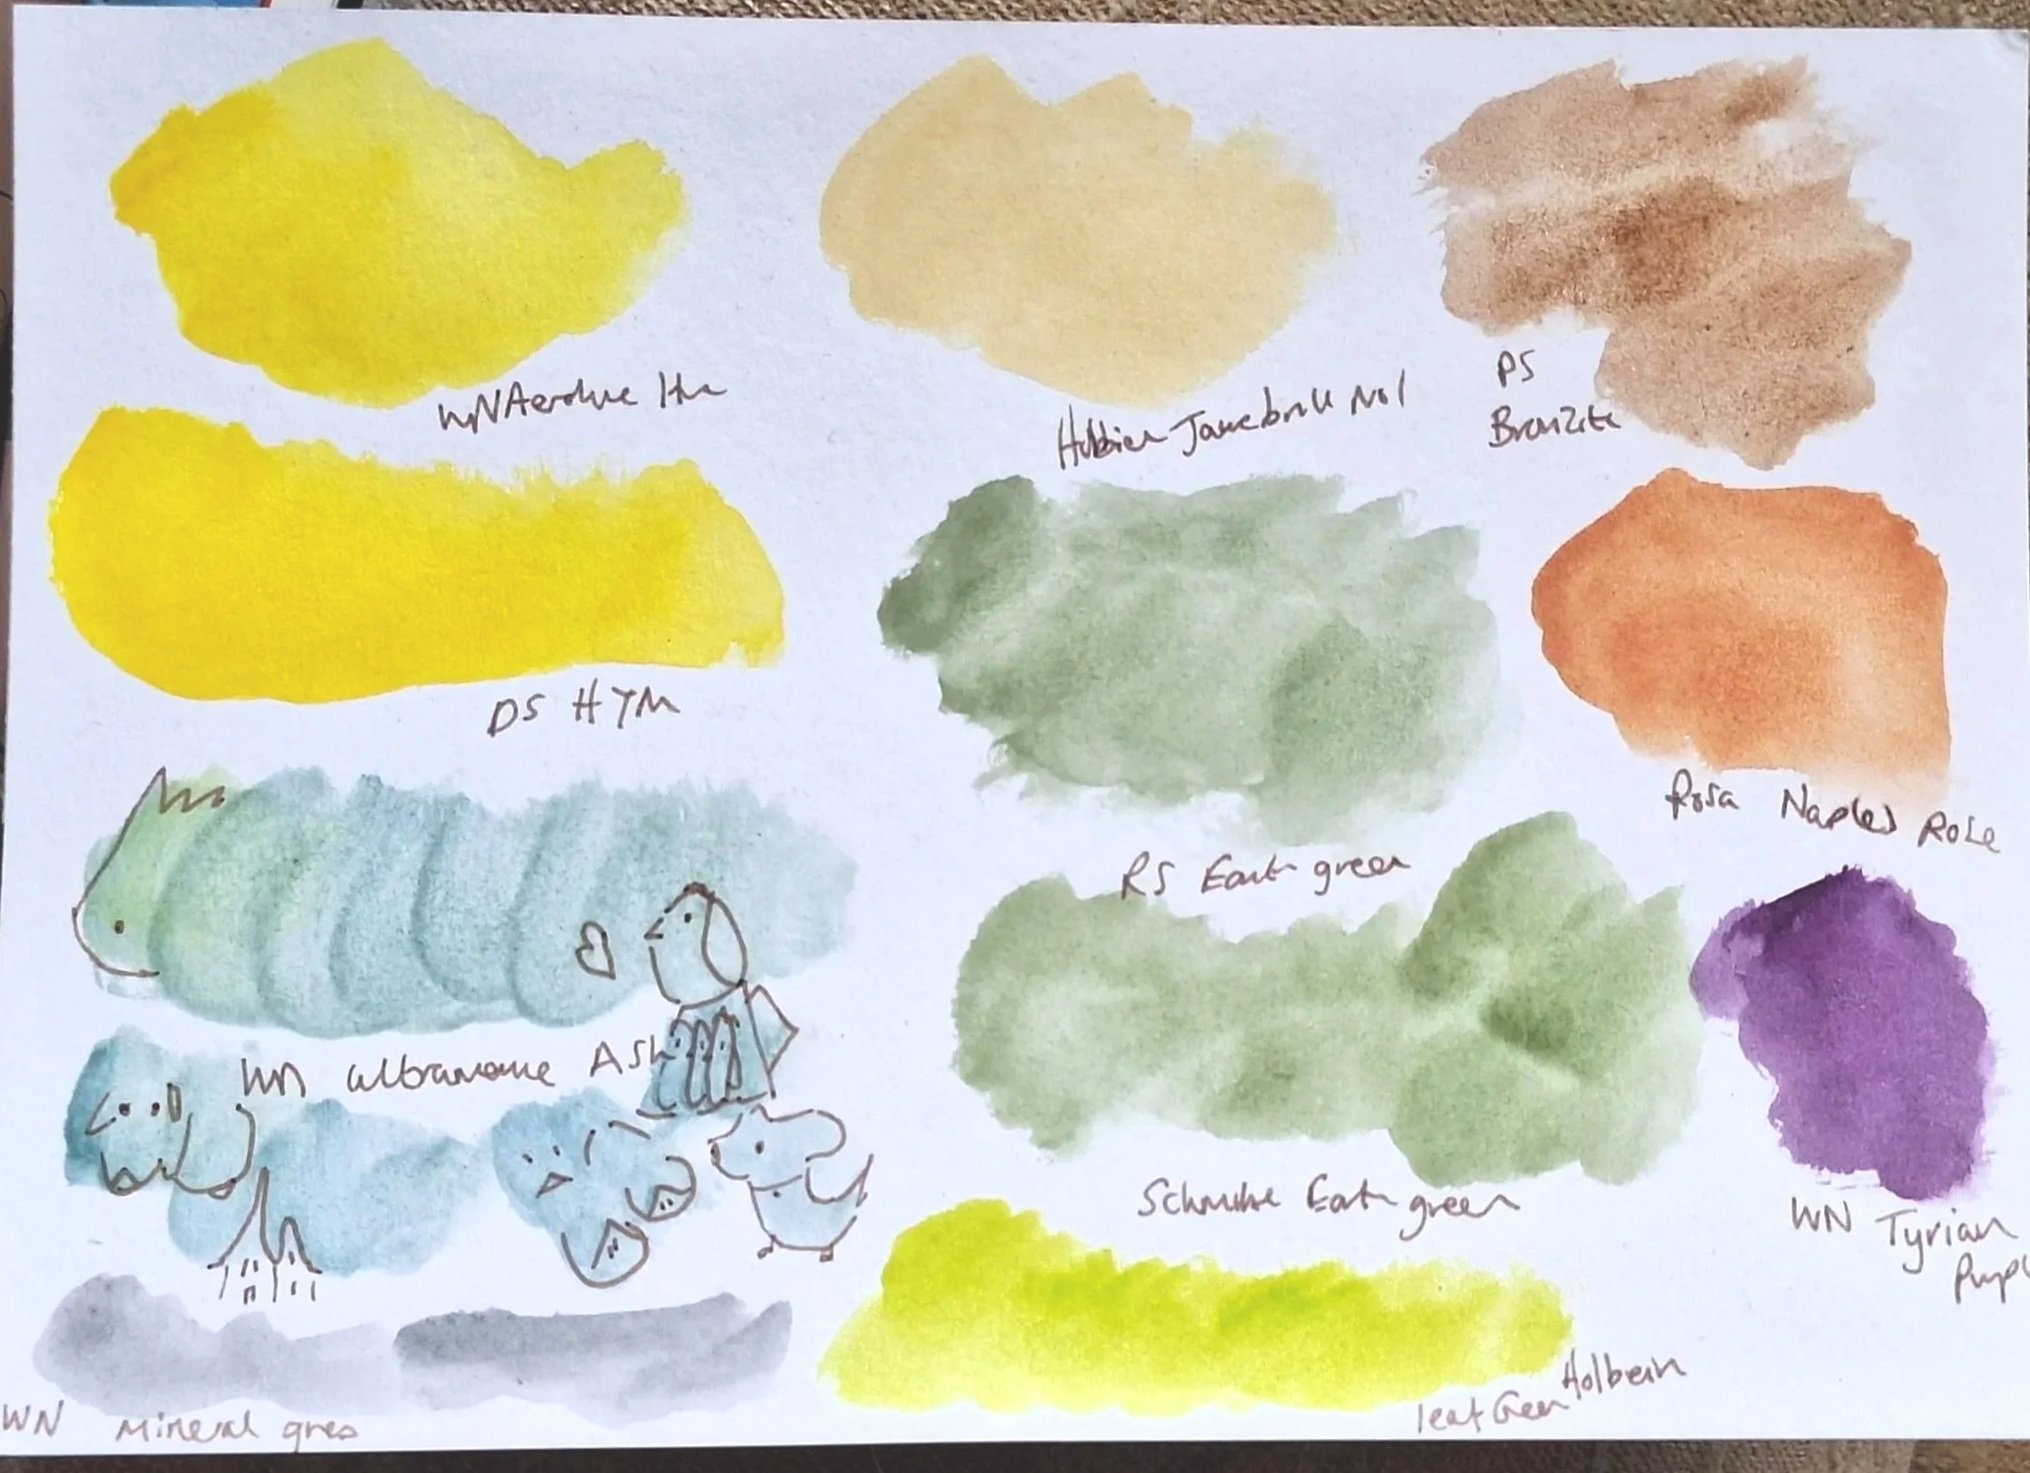 WN Aeroline Hue
Holbien Jaunebrill No1
PS
Bronzite
DS HYM
Rosa Naples Rose
RS Earth green
WN ultramarine Ash
Schminke Earth green
WN Tyrian
Purpl
Holbein
leaf Green
WN Mineral grey